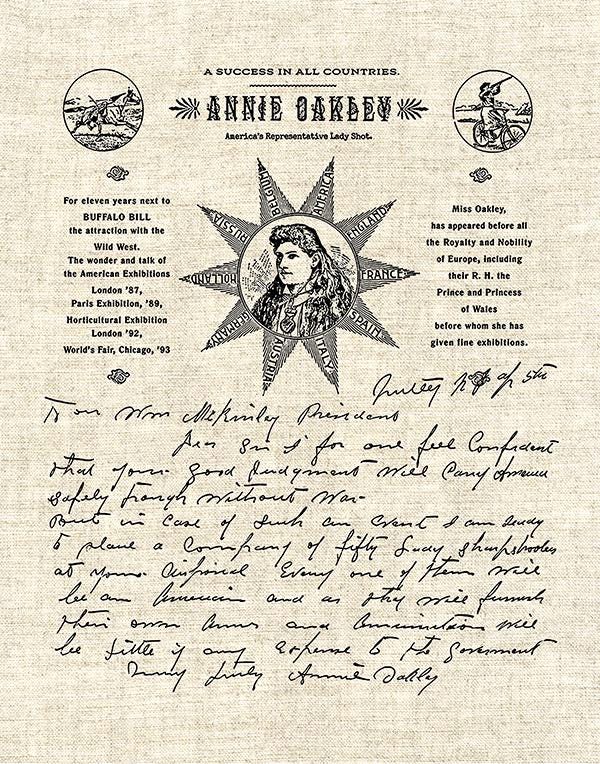 A SUCCESS IN ALL COUNTRIES.
ANNIE OAKLEY
America's Representative Lady Shot.
For eleven years next to
BUFFALO BILL
the attraction with the
Wild West.
The wonder and talk of
the American Exhibitions
London '87,
Paris Exhibition, '89,
Horticultural Exhibition
London '92,
World's Fair, Chicago, '93
BELGIUM
AMERICA
ENGLAND
FRANCE
SPAIN
ITALY
AUSTRIA
GERMANY
HOLLAND
RUSSIA
Miss Oakley,
has appeared before all
the Royalty and Nobility
of Europe, including
their R. H. the
Prince and Princess
of Wales
before whom she has
given fine exhibitions.
Nutley N J Ap 5th
Hon Wm McKinley President
Dear Sir I for one feel Confident
that your good judgment will carry America
safely through without War
But in case of such an event I am ready
to place a Company of fifty Lady sharpshooters
at your disposal Every one of them will
be an American and as they will furnish
their own Arms and Ammunition will
be little if any expense to the government
Very truly Annie Oakley